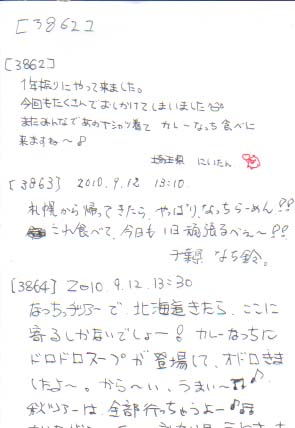 [3862]
[3862]
1年振りにやって来ました。
今回もたくさんでおしかけてしまいました
またみんなであのTシャツ着て カレーなっち食べに
来ますね〜♪
埼玉県 にいたん
[3863] 2010.9.12 13:10
札幌から帰ってきたら、やっぱり、なっちらーめん!!
これ食べて、今日も1日頑張るべぇ〜!!
千葉県 なち鈴。
[3864] 2010.9.12.13:30
なっちツアーで、北海道きたら、ここに
寄るしかないでしょー! カレーなっちに
ドロドロスープが登場して、オドロきま
したよ〜。から〜い、うまい〜♪♪
秋ツアーは、全部行っちゃうよー♪